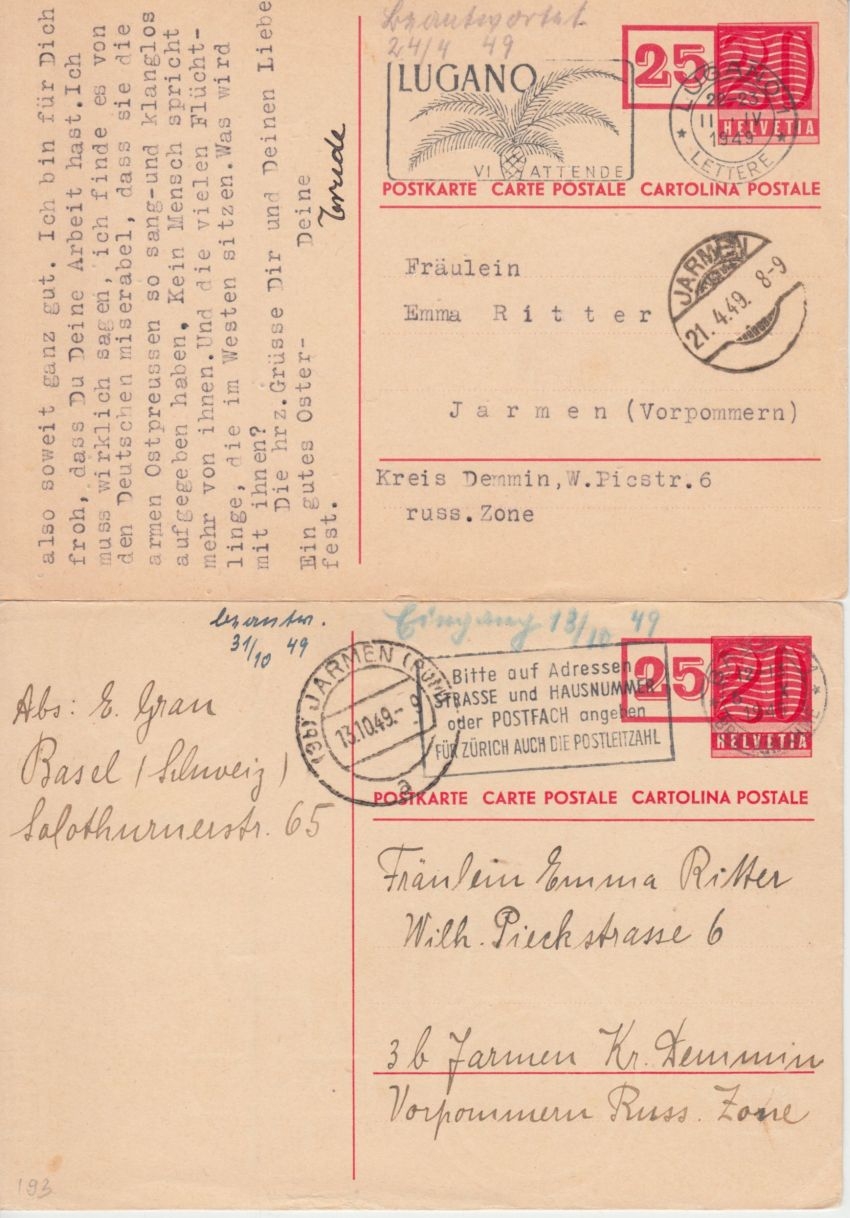 also soweit ganz gut. Ich bin für Dich
froh, dass Du Deine Arbeit hast.Ich
muss wirklich sagen, ich finde es von
den Deutschen miserabel, dass sie die
armen Ostpreussen so sang-und klanglos
aufgegeben haben. Kein Mensch spricht
mehr von ihnen.Und die vielen Flücht-
linge, die im Westen sitzen.Was wird
mit ihnen?
Die hrz.Grüsse Dir und Deinen Liebe
Ein gutes Oster- Deine
fest.
Trude
Beantwortet
24/4 49
25 20
HELVETIA
LUGANO
VI ATTENDE
LUGANO 1
22-23
11 IV
1949
LETTERE
POSTKARTE CARTE POSTALE CARTOLINA POSTALE
JARMEN
21.4.49. 8-9
Fräulein
Emma Ritter
Jarmen (Vorpommern)
Kreis Demmin,W.Picstr.6
russ.Zone
beantw.
31/10 49
Eingang 13/10 49
25 20
HELVETIA
(3b) JARMEN
13.10.49.
a
Bitte auf Adressen
STRASSE und HAUSNUMMER
oder POSTFACH angeben
FÜR ZÜRICH AUCH DIE POSTLEITZAHL
POSTKARTE CARTE POSTALE CARTOLINA POSTALE
Abs: E. Grau
Basel (Schweiz)
Solothurnerstr. 65
Fräulein Emma Ritter
Wilh. Pieckstrasse 6
3b Jarmen Kr. Demmin
Vorpommern Russ. Zone
193